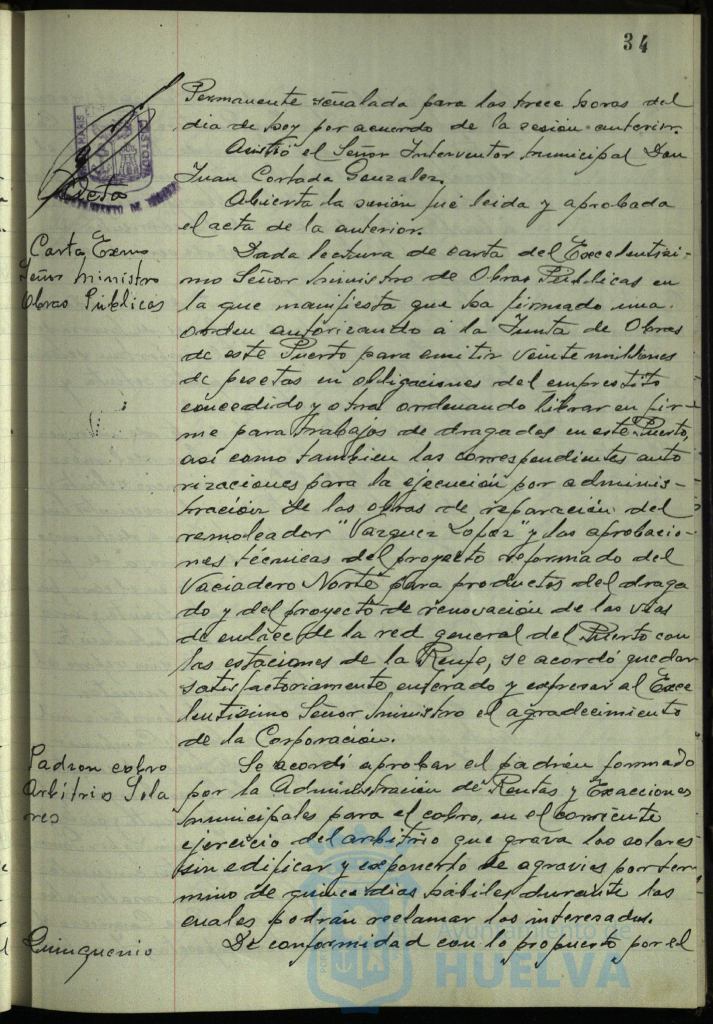 34
Permanente señalada para las trece horas del
dia de hoy por acuerdo de la sesión anterior.
Asistió el Señor Interventor municipal Don
Juan Cortada Gonzalez.
Abierta la sesión fué leida y aprobada
el acta de la anterior.
Carta Excmo
Señor Ministro
Obras Públicas
Dada lectura de carta del Excelentisi-
mo Señor Ministro de Obras Públicas en
la que manifiesta que ha firmado una
orden autorizando á la Junta de Obras
de este Puerto para emitir veinte millones
de pesetas en obligaciones del emprestito
concedido y otra ordenando librar en fir-
me para trabajos de dragados en este Puerto,
asi como tambien las correspondientes auto
rizaciones para la ejecución por adminis-
tración de las obras de reparación del
remolcador "Vazquez Lopez" y las aprobacio-
nes técnicas del proyecto reformado del
Vaciadero Norte para productos del draga
do y del proyecto de renovación de las vias
de enlace de la red general del Puerto con
las estaciones de la Renfe, se acordó quedar
satisfactoriamente enterado y expresar al Exce
lentisimo Señor Ministro el agradecimiento
de la Corporación.
Padron cobro
Arbitrios Sola
res
Se acordó aprobar el padrón formado
por la Administración de Rentas y Exacciones
municipales para el cobro, en el corriente
ejercicio del arbitrio que grava los solares
sin edificar y exponerlo de agravios por ter-
mino de quince dias habiles durante los
cuales podrán reclamar los interesados.
Quinquenio
De conformidad con lo propuesto por el
Ayuntamiento de
HUELVA